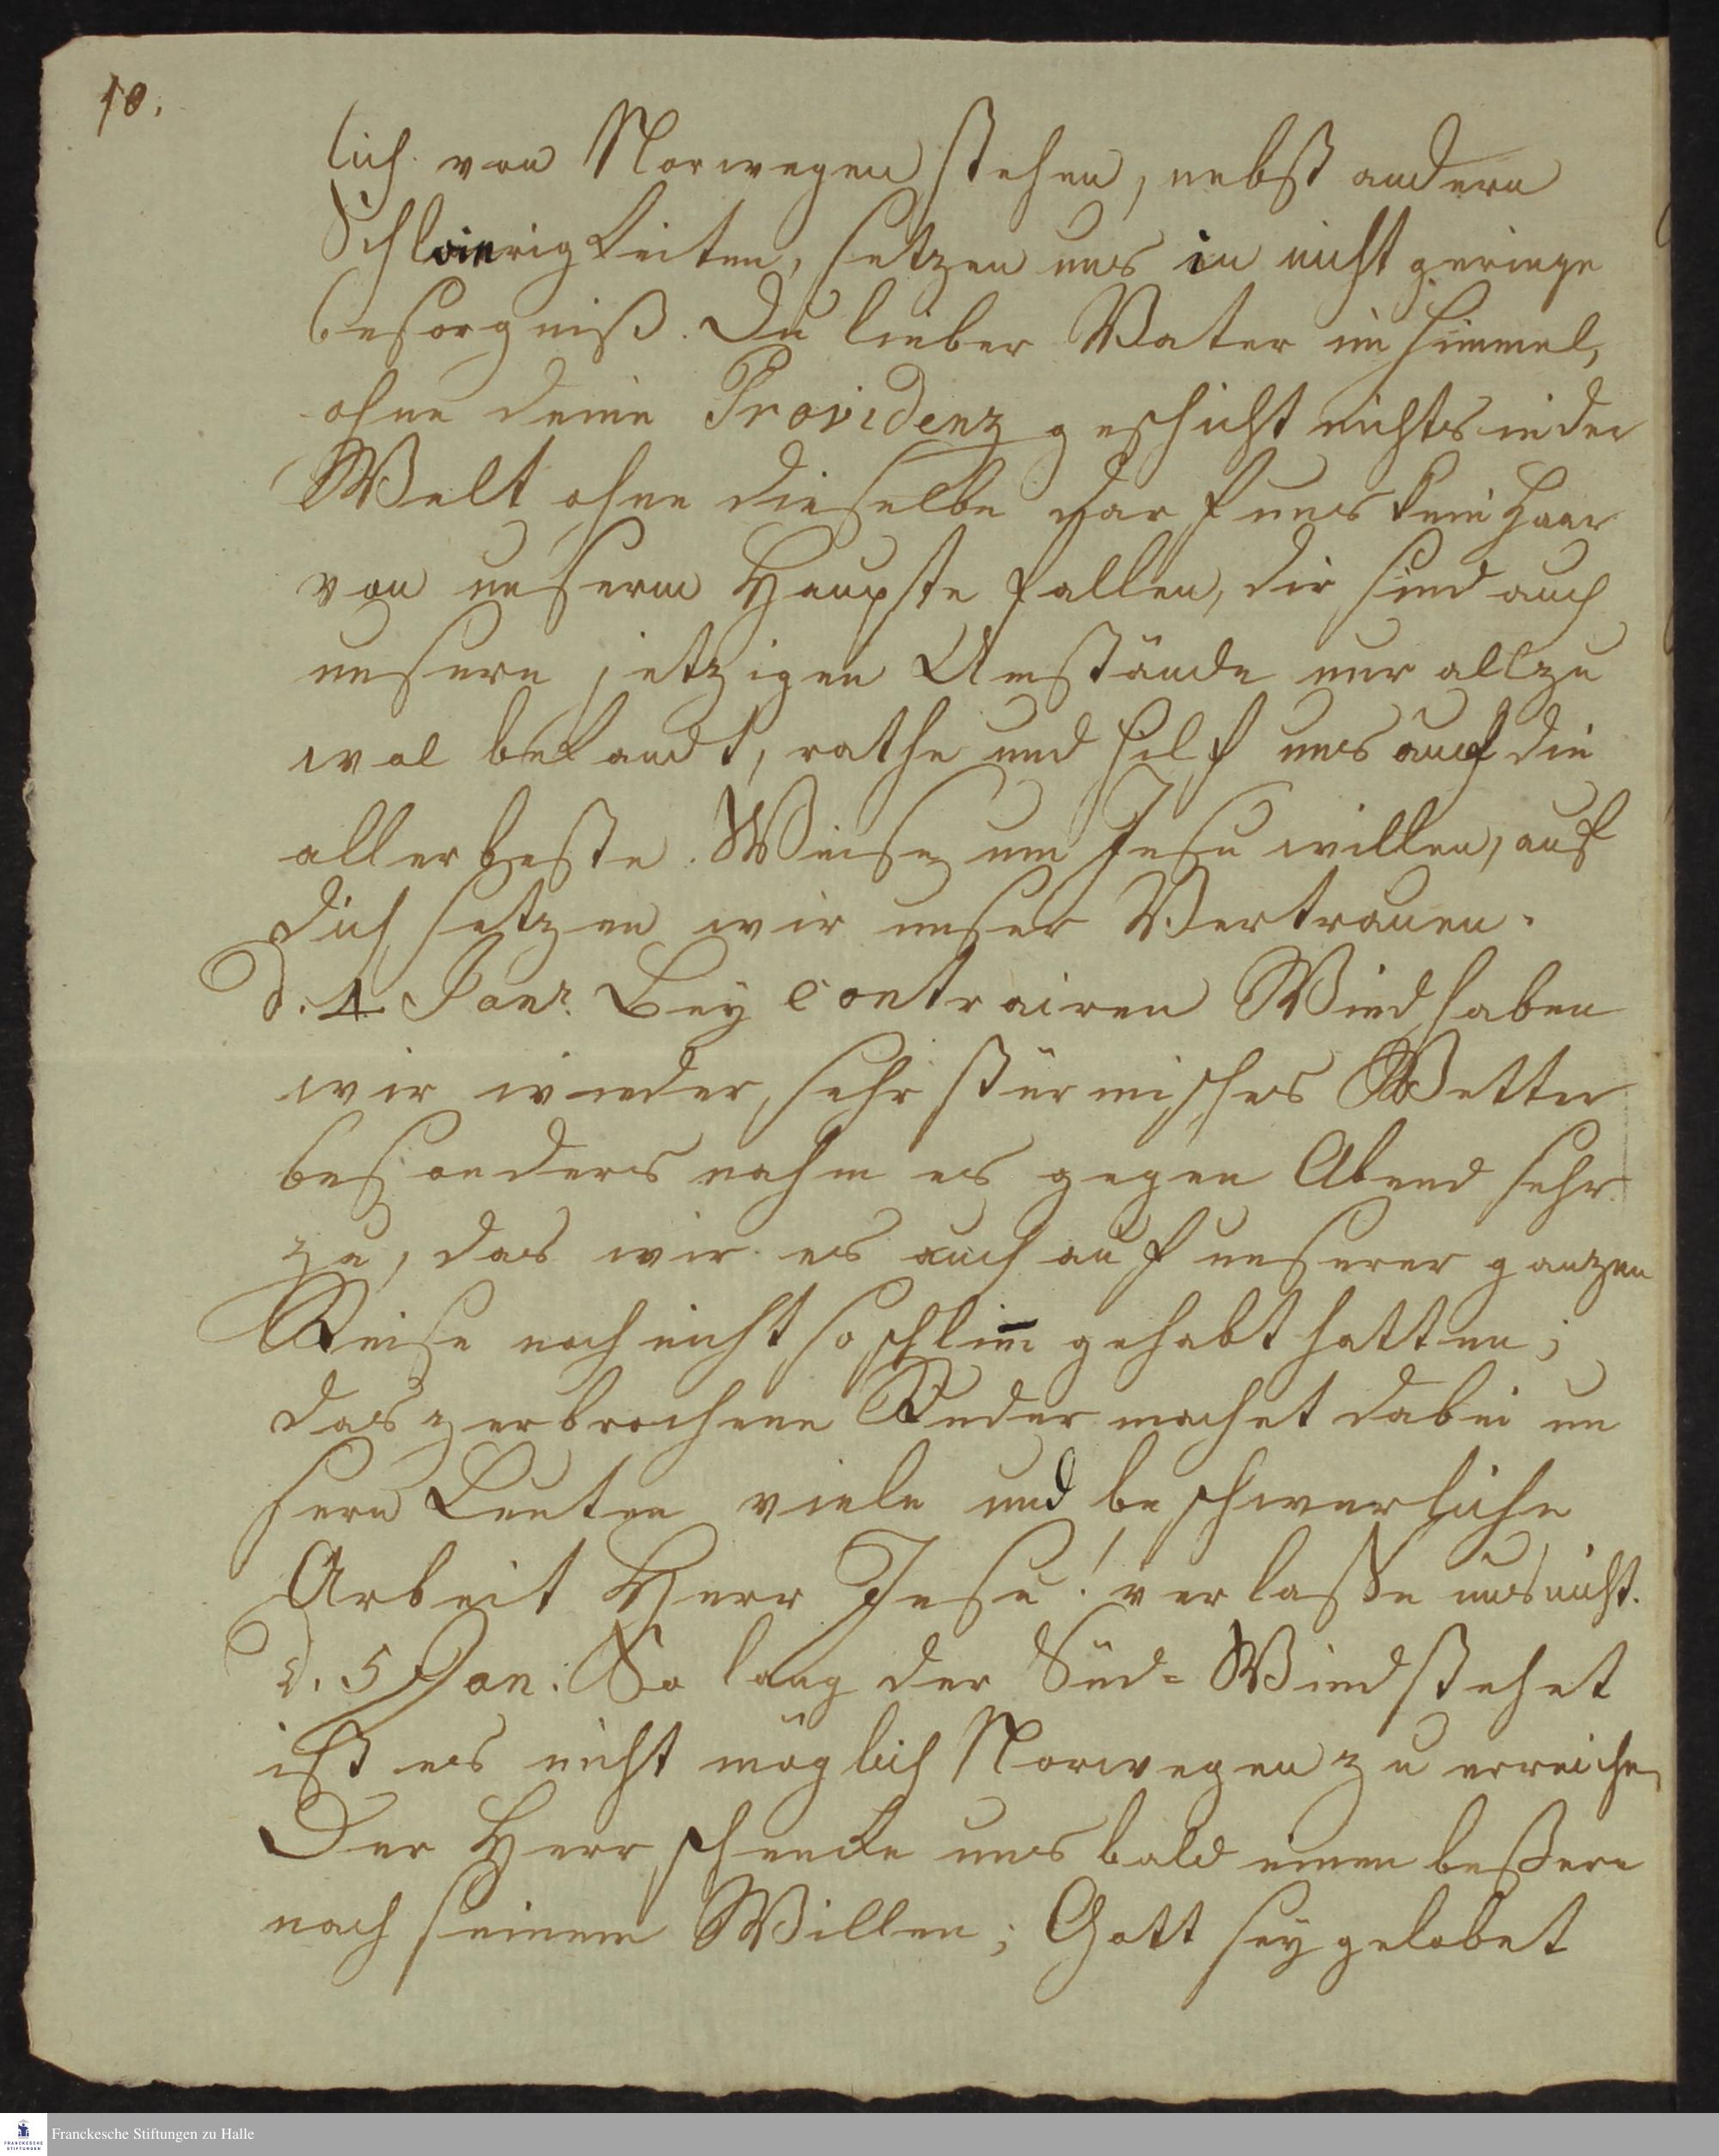 10.
lich von Norwegen stehen, nebst andern
Schwierigkeiten, setzen uns in nicht geringe
besorgniß. Du lieber Vater im Himmel,
ohne deine Providenz geschicht nichts in der
Welt ohne dieselbe darf uns kein Haar
von unserm Haupte fallen, dir sind auch
unsere jetzigen Umstände nur allzu
wol bekandt, rathe und hilf uns auf die
allerbeste Weise um Jesu willen, auf
dich setzen wir unser Vertrauen.
d. 4 Janr. Bey contrairen Wind haben
wir wieder sehr stürmisches Wetter
besonders nahm es gegen Abend sehr
zu, das wir es auch auf unserer ganzen
Reise noch nicht so schlim̅ gehabt hatten;
das zerbrochene Ruder machet dabei un
sern Leuten viele und beschwerliche
Arbeit Herr Jesu! verlaße uns nicht.
d. 5 Jan: So lang der Süd- Wind stehet
ist es nicht möglich Norwegen zu erreichen
Der Herr schencke uns bald einen beßern
nach seinem Willen; Gott sey gelobet
Franckesche Stiftungen zu Halle
FRANCKESCHE
STIFTUNGEN